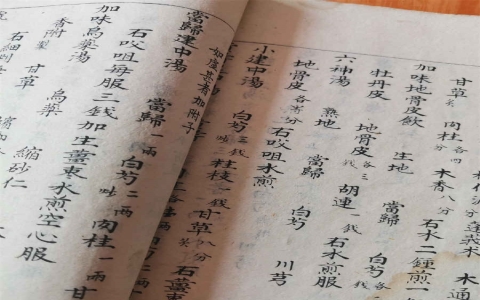 木通
木二鍾煎一
甘草 肉桂 各四分 木香八分
加味地骨皮飲 生地 當歸 白芍
牡丹皮 地骨皮各三錢 胡連一錢 右水煎服
六神湯 熟地 當歸 白芍 川芎
地骨皮各等分 右㕮咀水煎
小建中湯 白芍三錢 桂枝一錢 甘草八分 右薑
如虛甚者加附子
當歸建中湯 當歸一兩 白芍二兩 肉桂一兩 甘
右㕮咀每服三錢加生薑棗水煎空心服
加味烏藥湯 烏藥 縮砂仁
香附 甘草